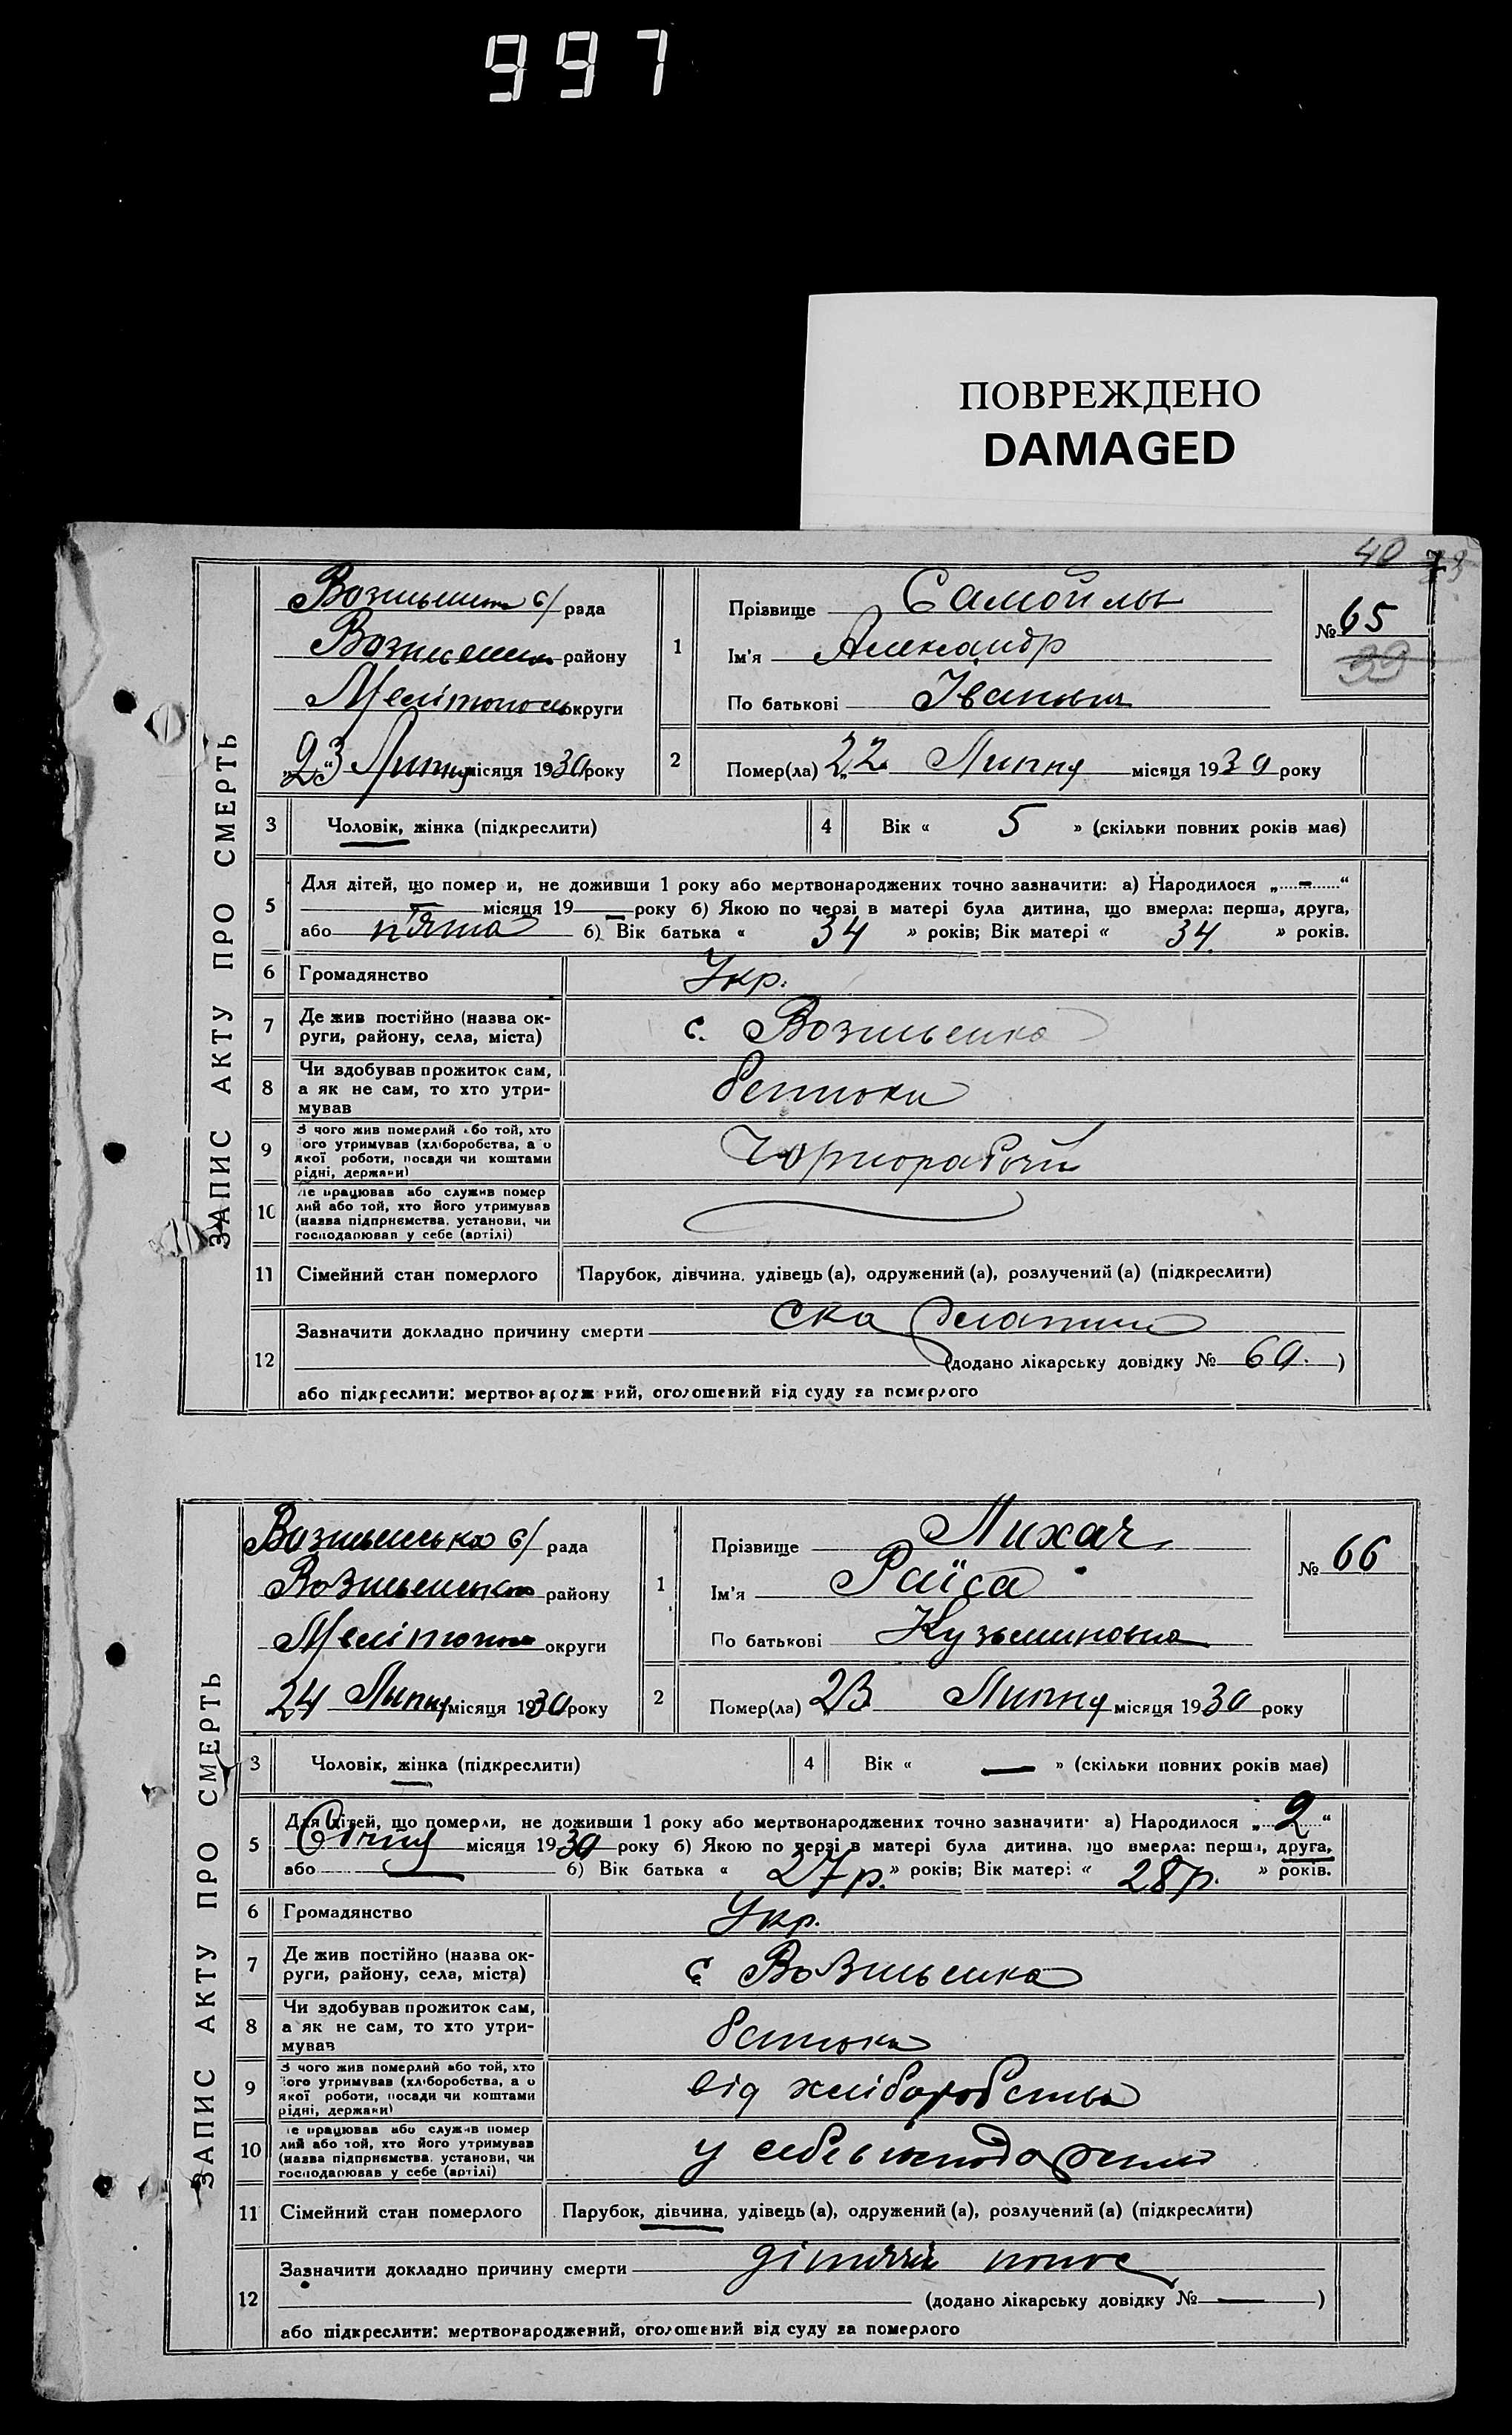 997
ПОВРЕЖДЕНО
DAMAGED
40
ЗАПИС АКТУ ПРО СМЕРТЬ
с/ рада
району
округи
„23“ Липня місяця 1930 року
1
Прізвище Самойлы
Ім'я Александр
По батькові Іванович
№ 65
39
2
Помер(ла) „22 Липня місяця 1930 року
3
Чоловік, жінка (підкреслити)
4
Вік « 5 » (скільки повних років має)
5
Для дітей, що помер и, не доживши 1 року або мертвонароджених точно зазначити: а) Народилося „ - “
місяця 19 — року б) Якою по черзі в матері була дитина, що вмерла: перша, друга,
або п'ята б) Вік батька « 34 » років; Вік матері « 34 » років.
6
Громадянство
Укр.
7
Де жив постійно (назва ок-
руги, району, села, міста)
с. Вознесенка
8
Чи здобував прожиток сам,
а як не сам, то хто утри-
мував
батьки
9
З чого жив померлий або той, хто
ого утримував (хліборобства, а о
якої роботи, посади чи коштами
рідні, держави)
Чорнорабочий
10
Де працював або служив помер
лий або той, хто його утримував
(назва підприємства, установи, чи
господарював у себе (артілі)
11
Сімейний стан померлого
Парубок, дівчина, удівець (а), одружений (а), розлучений (а) (підкреслити)
12
Зазначити докладно причину смерти скарлатина
(додано лікарську довідку № 60. )
або підкреслити: мертвонароджений, оголошений від суду за померлого
ЗАПИС АКТУ ПРО СМЕРТЬ
Вознесенська с/ рада
Вознесенська району
округи
24 Липня місяця 1930 року
1
Прізвище Лихач
Ім'я Раїса
По батькові Кузьминовна
№ 66
2
Помер(ла) 23 Липня місяця 1930 року
3
Чоловік, жінка (підкреслити)
4
Вік « — » (скільки повних років має)
5
Для дітей, що померли, не доживши 1 року або мертвонароджених точно зазначити: а) Народилося „ 2 “
Січня місяця 1930 року б) Якою по черзі в матері була дитина, що вмерла: перша, друга,
або — б) Вік батька « 27 р. » років; Вік матері « 28 р. » років.
6
Громадянство
Укр.
7
Де жив постійно (назва ок-
руги, району, села, міста)
с Вознесенка
8
Чи здобував прожиток сам,
а як не сам, то хто утри-
мував
батька
9
З чого жив померлий або той, хто
ого утримував (хліборобства, а о
якої роботи, посади чи коштами
рідні, держави)
від хліборобства
10
е працював або служив помер
лий або той, хто його утримував
(назва підприємства, установи, чи
господарював у себе (артілі)
у себе в
11
Сімейний стан померлого
Парубок, дівчина, удівець (а), одружений (а), розлучений (а) (підкреслити)
12
Зазначити докладно причину смерти дітячий понос
(додано лікарську довідку № — )
або підкреслити: мертвонароджений, оголошений від суду за померлого